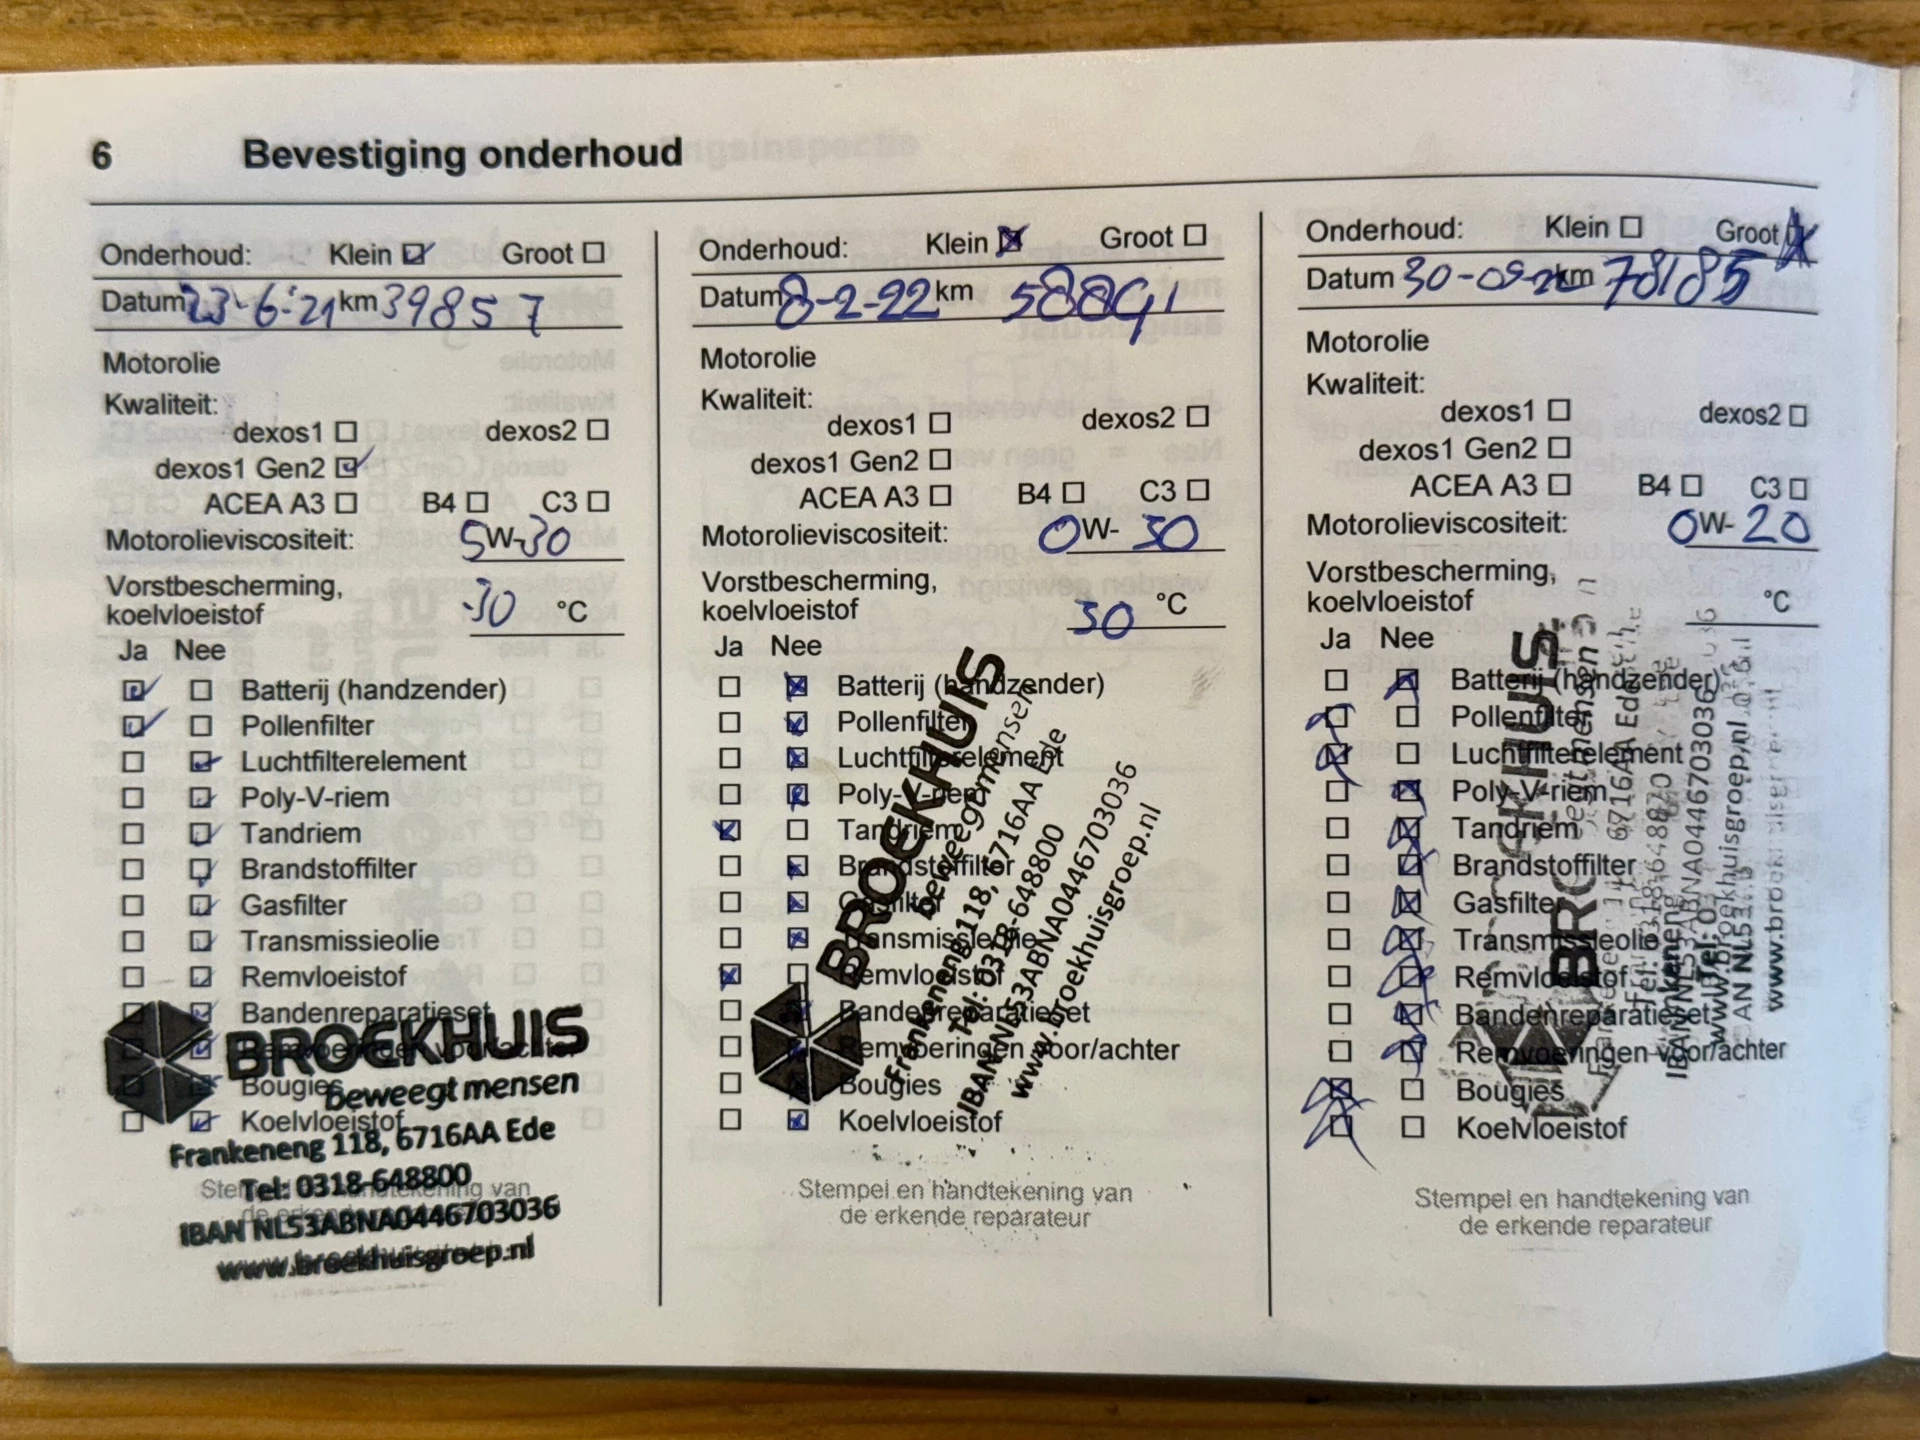 6 Bevestiging onderhoud
Onderhoud: Klein Groot
Datum 23-6-21 km 39857
Motorolie
Kwaliteit:
dexos1 dexos2
dexos1 Gen2
ACEA A3 B4 C3
Motorolieviscositeit: 5W-30
Vorstbescherming,
koelvloeistof -30 °C
Ja Nee
Batterij (handzender)
Pollenfilter
Luchtfilterelement
Poly-V-riem
Tandriem
Brandstoffilter
Gasfilter
Transmissieolie
Remvloeistof
Bandenreparatieset
BROEKHUIS
Bougies
beweegt mensen
Koelvloeistof
Frankeneng 118, 6716AA Ede
Tel: 0318-648800
IBAN NL53ABNA0446703036
www.broekhuisgroep.nl
Onderhoud: Klein Groot
Datum 8-2-22 km 58891
Motorolie
Kwaliteit:
dexos1 dexos2
dexos1 Gen2
ACEA A3 B4 C3
Motorolieviscositeit: 0W-30
Vorstbescherming,
koelvloeistof 30 °C
Ja Nee
Batterij (handzender)
Pollenfilter
Luchtfilterelement
Poly-V-riem
Tandriem
Brandstoffilter
Gasfilter
Transmissieolie
Remvloeistof
Bandenreparatieset
Remvoeringen voor/achter
Bougies
Koelvloeistof
BROEKHUIS
beweegt mensen
Frankeneng 118, 6716AA Ede
Tel: 0318-648800
IBAN NL53ABNA0446703036
www.broekhuisgroep.nl
Stempel en handtekening van
de erkende reparateur
Onderhoud: Klein Groot
Datum 30-09- km 78185
Motorolie
Kwaliteit:
dexos1 dexos2
dexos1 Gen2
ACEA A3 B4 C3
Motorolieviscositeit: 0W-20
Vorstbescherming,
koelvloeistof °C
Ja Nee
Batterij (handzender)
Pollenfilter
Luchtfilterelement
Poly-V-riem
Tandriem
Brandstoffilter
Gasfilter
Transmissieolie
Remvloeistof
Bandenreparatieset
Remvoeringen voor/achter
Bougies
Koelvloeistof
Stempel en handtekening van
de erkende reparateur